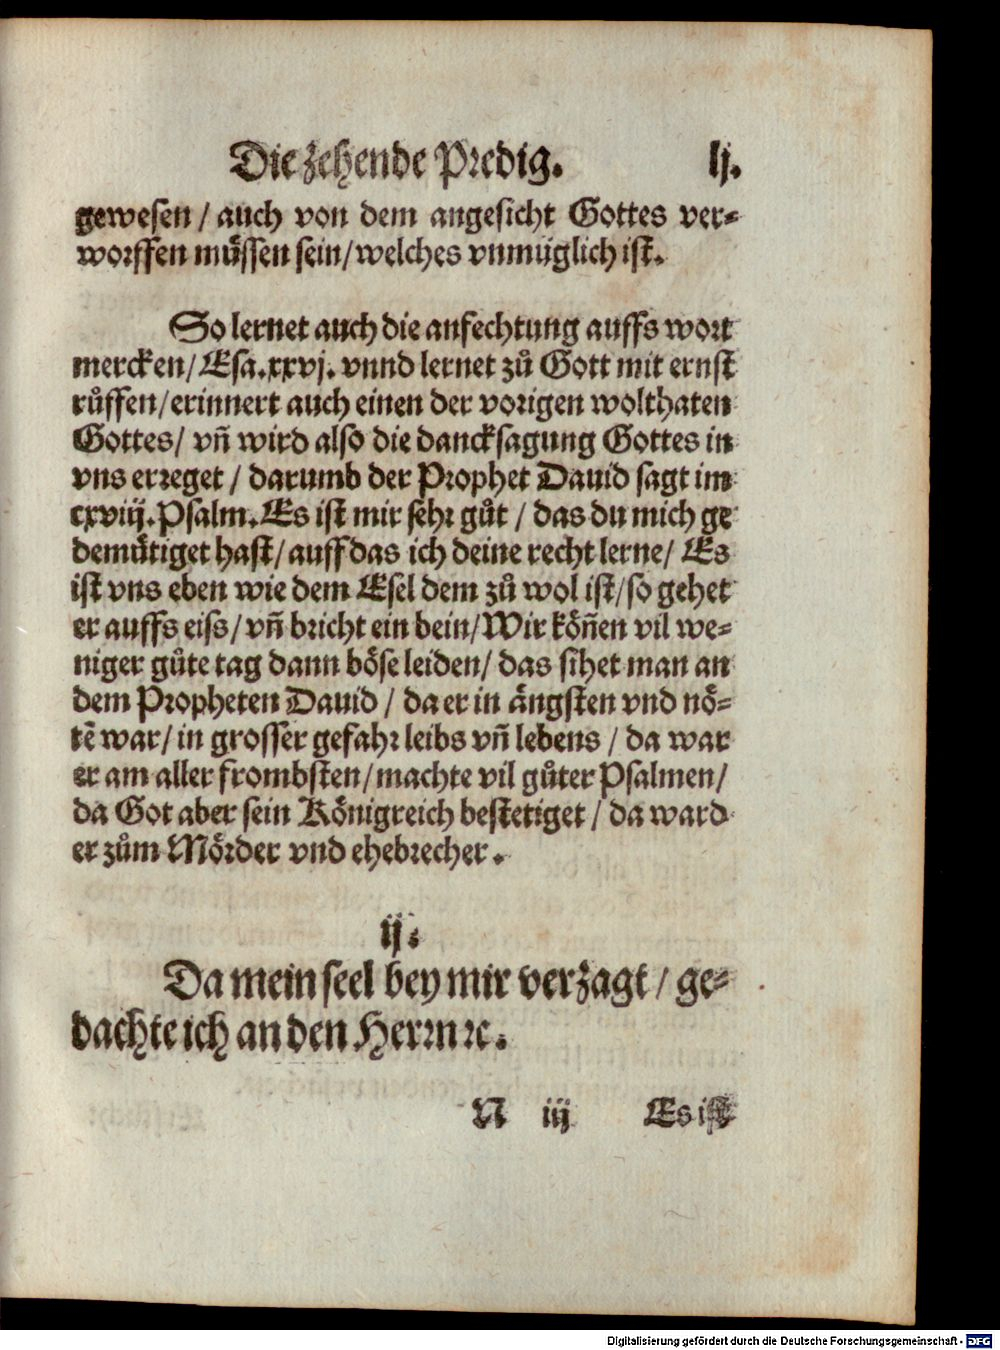 Die zehende Predig. lj.
gewesen / auch von dem angesicht Gottes ver⸗
worffen muͤssen sein / welches vnmüglich ist.
So lernet auch die anfechtung auffs wort
mercken / Esa. xxvj. vnnd lernet zuͦ Gott mit ernst
ruͦffen / erinnert auch einen der vorigen wolthaten
Gottes / vñ wird also die dancksagung Gottes in
vns erreget / darumb der Prophet Dauid sagt im
cxviij. Psalm. Es ist mir sehr guͦt / das du mich ge
demuͤtiget hast / auff das ich deine recht lerne / Es
ist vns eben wie dem Esel dem zuͦ wol ist / so gehet
er auffs eiss / vñ bricht ein bein / Wir koͤñen vil we⸗
niger guͦte tag dann boͤse leiden / das sihet man an
dem Propheten Dauid / da er in aͤngsten vnd noͤ⸗
tẽ war / in grosser gefahr leibs vñ lebens / da war
er am aller frombsten / machte vil guͦter Psalmen /
da Got aber sein Koͤnigreich bestetiget / da ward
er zuͦm Moͤrder vnd ehebrecher.
ij.
Da mein seel bey mir verzagt / ge⸗
dachte ich an den Herrn ꝛc.
N iij Es ist
Digitalisierung gefördert durch die Deutsche Forschungsgemeinschaft - DFG